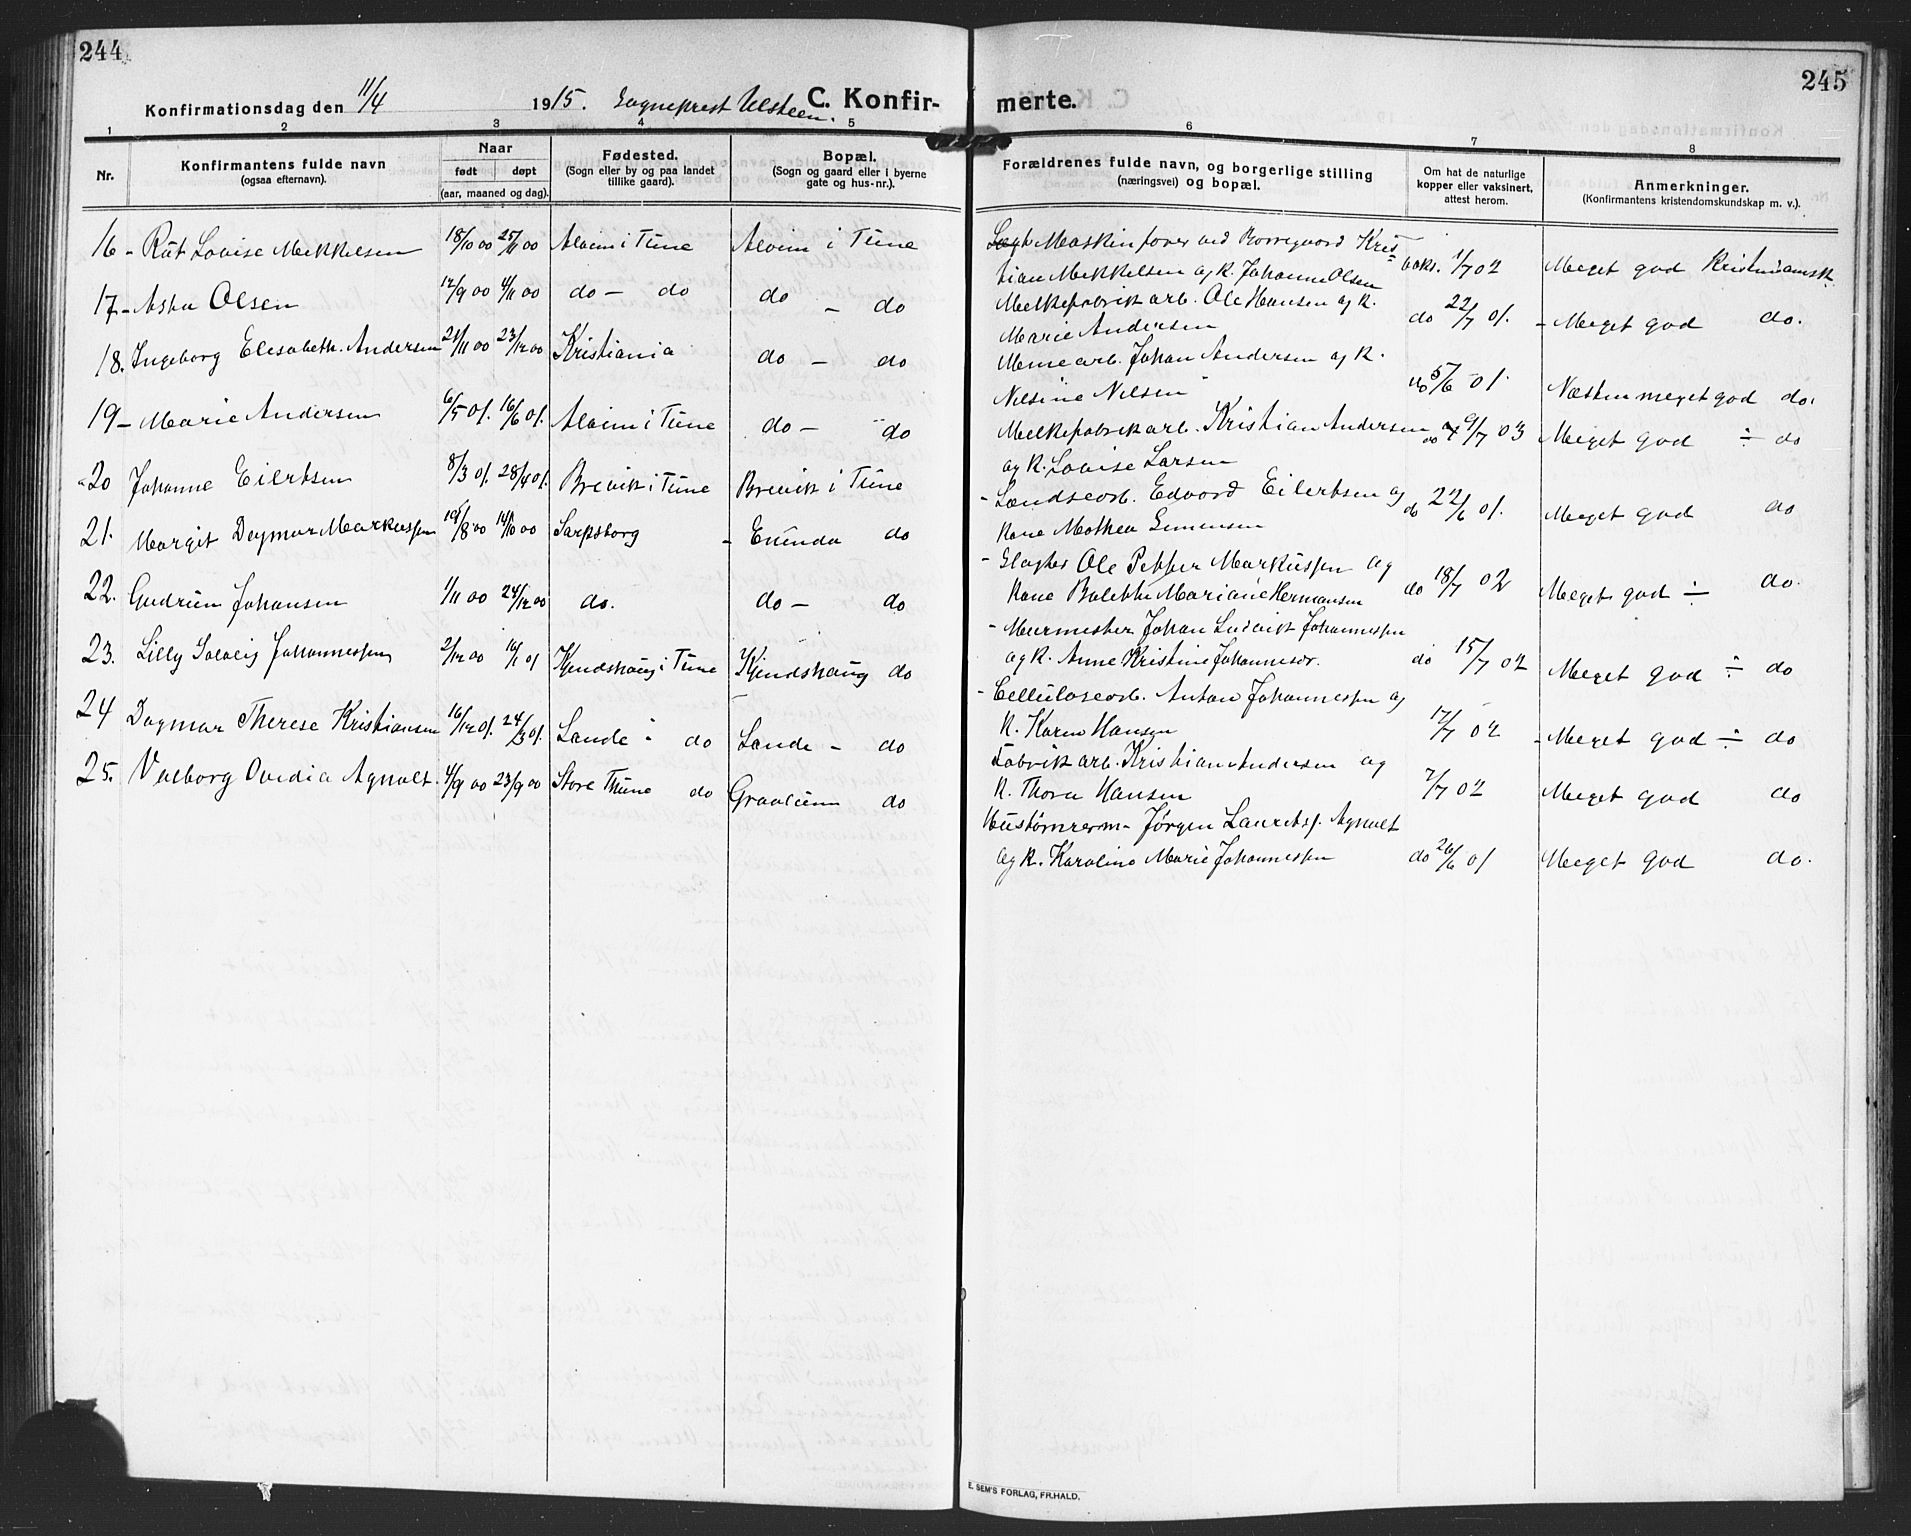 244
Konfirmationsdag den 11/4 1915. Sogneprest Ulsteen. C. Konfir-
1 2 3 4 5
Nr. Konfirmantens fulde navn (ogsaa efternavn). Naar født døpt (aar, maaned og dag). Fødested. (Sogn eller by og paa landet tillike gaard). Bopæl. (Sogn og gaard eller i byerne gate og hus-nr.).
16 - Rut Lovise Mekkelsen 18/10 00 25/11 00 Alvim i Tune Alvim i Tune
17 - Asta Olsen 12/9 00 4/11 00 do - do do - do
18. Ingeborg Elisabeth. Andersen 21/11 00 23/12 00 Kristiania do - do
19 - Marie Andersen 6/5 01. 16/6 01. Alvim i Tune do - do
20 Johanne Eilertsen 8/3 01. 28/4 01. Brevik i Tune Brevik i Tune
21. Margit Dagmar Markussen 19/8 00 14/10 00 Sarpsborg - Eninda do
22. Gudrun Johansen 1/11 00 24/12 00 do. do - do
23. Lilly Solveig Johannessen 2/12 00 16/1 01 Kjendshaug i Tune Kjendshaug do
24 Dagmar Therese Kristiansen 16/12 01. 24/3 01. Lande - do Lande - do
25. Valborg Ovidia Agnalt 4/9 00 23/9 00 Store Thune do Graalum do
245
merte.
6 7 8
Forældrenes fulde navn, og borgerlige stilling (næringsvei) og bopæl. Om hat de naturlige kopper eller vaksinert, attest herom. Anmerkninger. (Konfirmantens kristendomskundskap m. v.).
Maskinfører ved Borregaard Kris-
tian Mekkelsen og k. Johanne Olsen vaks. 1/7 02 Meget god Kristendomsk.
Melkefabrikarb. Ole Hansen og k.
Marie Andersen do 22/7 01. - Meget god do.
Murearb. Johan Andersen og k.
Nilsine Nilsen do 5/6 01. Næsten meget god do.
Melkefabrikarb. Kristian Andersen do 9/7 03 Meget god ÷ do
og k. Lovise Larsen
- Landsearb. Edvard Eilertsen og do 22/6 01. Meget god do
kone Mathea Simensen
- Slagter Ole Petter Markussen og
kone Bolette Mariane Hermansen do 18/7 02 Meget god ÷ do.
- Murmester Johan Ludvik Johannessen
og k. Anne Kristine Johannesdr. do 15/7 02 Meget god ÷ do
- Cellulosearb. Anton Johannessen og
k. Karen Hansen 17/7 02 - Meget god ÷ do
Fabrikarb. Kristian Andersen og
k. Thora Hansen 7/7 02 Meget god do
Hustømrerm- Jørgen Lauritsf. Agnalt
og k. Karoline Marie Johannessen do 26/6 01 Meget god do.
E. SEM'S FORLAG, FR.HALD.